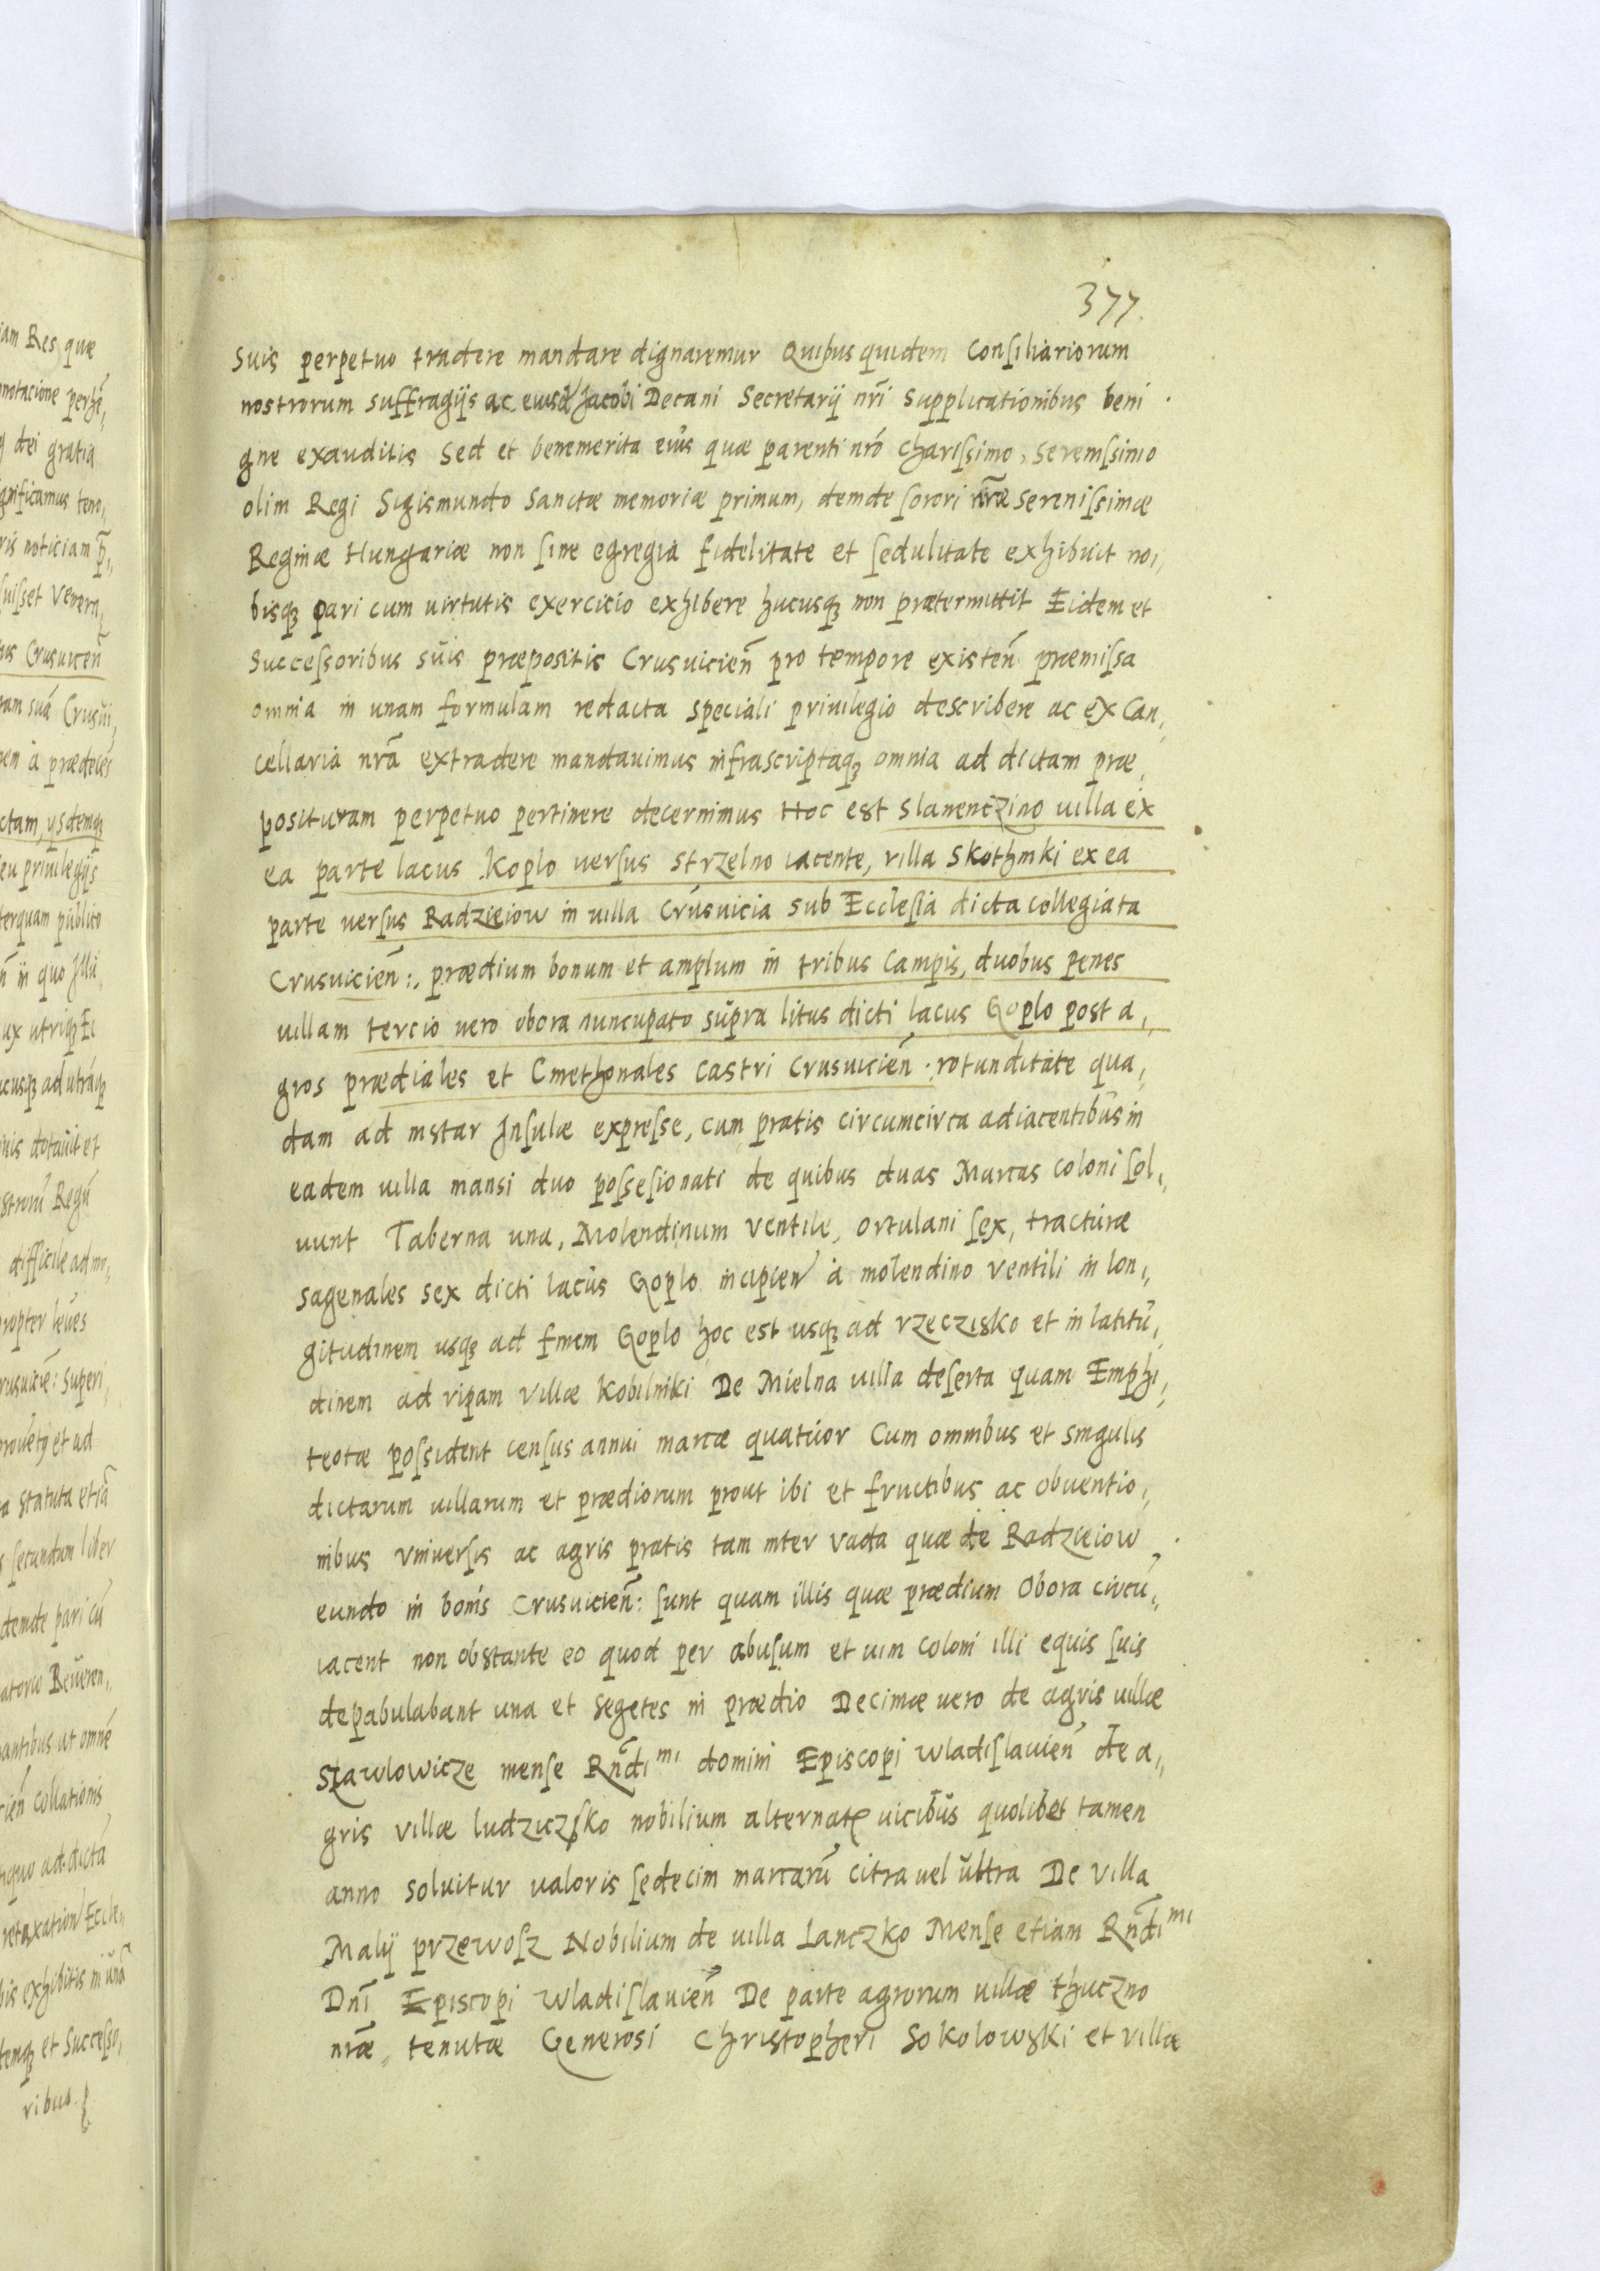 377.
Suis perpetuo tradere mandare dignaremur Quibus quidem Consiliariorum
nostrorum suffragijs ac eiusd Jacobi Decani Secretarij nri Supplicationibus beni
gne exauditis Sed et benemerita eius quæ parenti nro charissimo, serenissimo
olim Regi Sigismundo Sanctæ memoriæ primum, deinde sorori nræ Serenissimæ
Reginæ Hungariæ non sine egregia fidelitate et sedulitate exhibuit no,
bisq pari cum virtutis exercicio exhibere hucusq non prætermittit Eidem et
Successoribus suis præpositis Crusvicien pro tempore existen præmissa
omnia in unam formulam redacta speciali privilegio describere ac ex Can,
cellaria nra extradere mandavimus infrascriptaq omnia ad dictam præ,
posituram perpetuo pertinere decernimus Hoc est Slanenczino villa ex
ea parte lacus Koplo versus Strzelno iacente, villa Skothniki ex ea
parte versus Radzieiow in villa Crusvicia sub Ecclesia dicta collegiata
Crusvicien: prædium bonum et amplum in tribus campis, duobus penes
villam tercio vero obora nuncupato supra litus dicti lacus Goplo post a,
gros prædiales et Cmethonales Castri Crusvicien rotunditate qua,
dam ad instar Insulæ expresse, cum pratis circumcirca adiacentibus in
eadem villa mansi duo possesionati de quibus duas Marcas coloni sol,
vunt Taberna una, Molendinum ventile, ortulani sex, tracturæ
sagenales sex dicti lacus Goplo incipien a molendino ventili in lon,
gitudinem usq ad finem Goplo hoc est usq ad rzeczisko et in latitu,
dinem ad ripam villæ Kobilniki De Mielna villa deserta quam Emphi,
teotæ possident census annui marcæ quatuor Cum omnibus et singulis
dictarum villarum et prædiorum prout ibi et fructibus ac obventio,
nibus vniversis ac agris pratis tam inter vada quæ de Radzieiow
eundo in bonis Crusvicien: sunt quam illis quæ prædium Obora circu,
iacent non obstante eo quod per abusum et vim coloni illi equis suis
depabulabant una et segetes in prædio Decimæ vero de agris villæ
Slawlowicze mense Rndi mi domini Episcopi Wladislavien de a,
gris villæ ludziczsko nobilium alternat vicibus quolibet tamen
anno solvitur valoris sedecim marcaru citra vel ultra De villa
Malij przewosz Nobilium de villa Lanczko Mense etiam Rndi mi
Dni Episcopi Wladislavien De parte agrorum villæ thuczno
nræ, tenutæ Generosi Christopheri Sokolowski et villæ